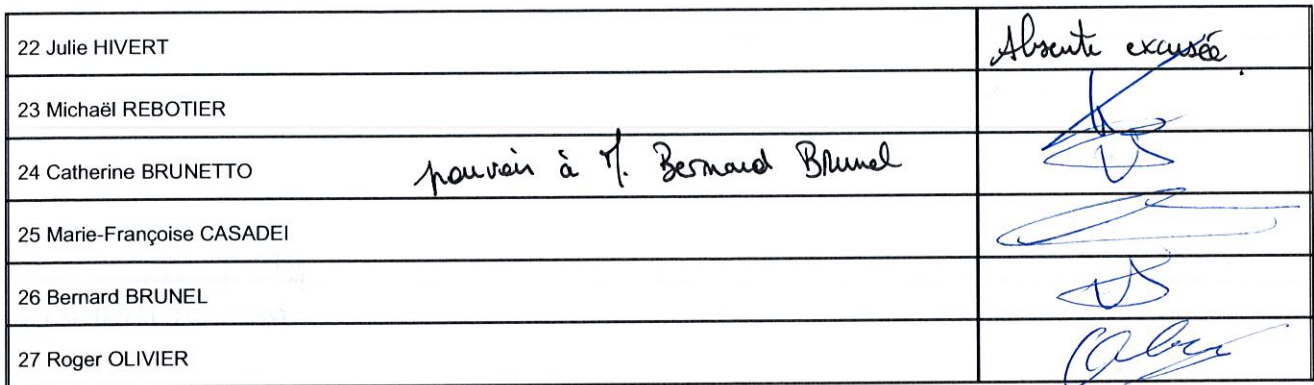 22 Julie HIVERT Absente excusée.
23 Michaël REBOTIER
24 Catherine BRUNETTO pouvoir à M. Bernard Brunel
25 Marie-Françoise CASADEI
26 Bernard BRUNEL
27 Roger OLIVIER